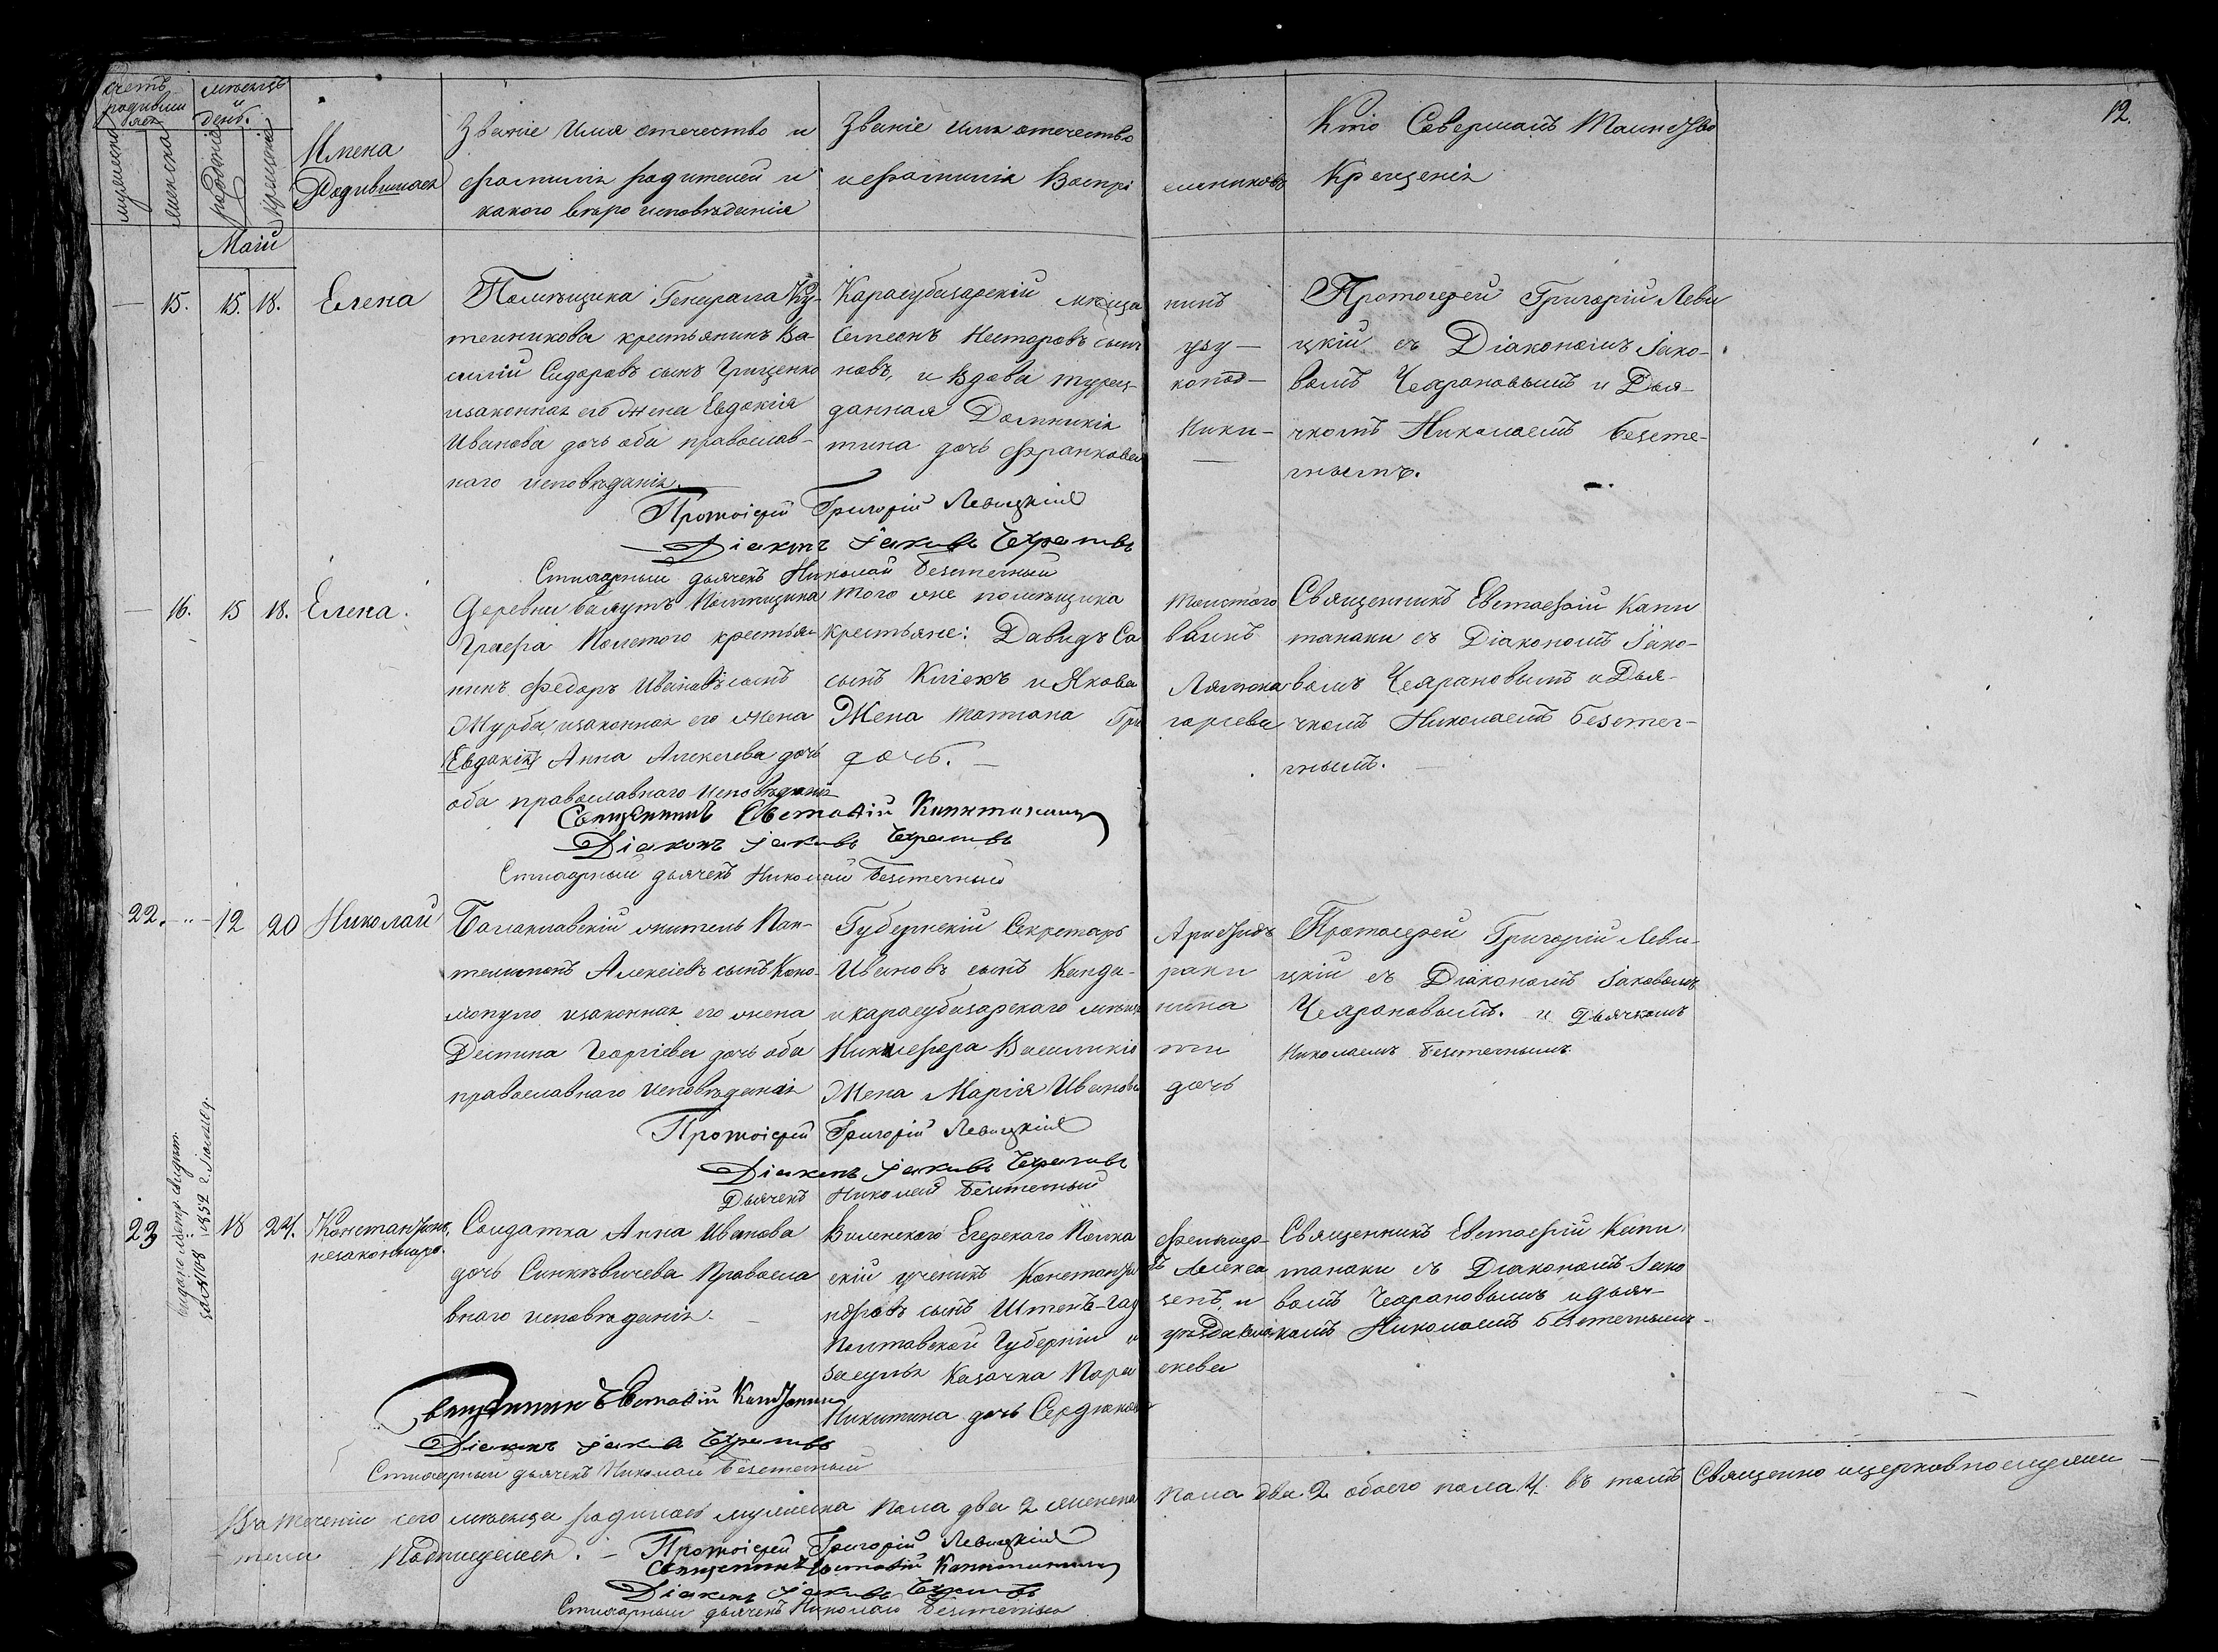 12.
счетъ родившихся
мужеска
женска
мѣсяцъ и день.
рожденія
крещенія
Имена
Родившихся
Званіе Имя отечество и
фамилія родителей и
какого вѣроисповѣданія
Званіе имя отечество
и фамилія Воспрі емниковъ
Кто Совершалъ Таинство
Крещенія
Маій
— 15. 15. 18. Елена
Помѣщика Генерала Ку-
тешникова крестьянинъ Ва-
силій Сидоровъ сынъ Грищенко
изаконная его жена Евдокія
Иванова дочь оба православ-
наго исповѣданія.
Карасубазарскій мѣща нинъ
Семеонъ Несторовъ сынъ
новъ, и Вдова турец- копод-
данная Домникія Ники-
тина дочь Франкова —
Протоіерей Григорій Леви
цкій съ Діакономъ Іако-
вомъ Чехрановымъ и Дья-
чкомъ Николаемъ Безсте-
чнымъ.
Протоіерей Григорій Левицкій
Діаконъ Іаковъ Чехрановъ
Стихарный дьячекъ Николай Безстечный
— 16. 15 18. Елена.
Деревни помѣщика
Графа Толстого крестья-
нинъ Федоръ Ивановъ сынъ
Журба, изаконная его жена
Евдокія Анна Алексеева дочь
оба православнаго исповѣданія
того же помѣщика Толстого
крестьяне: Давидъ Са ввинъ
сынъ и Якова
Жена Татіана Гри горіева
дочь. —
Священникъ Евстафій Капи
танаки съ Діакономъ Іако-
вомъ Чехрановымъ и Дья-
чкомъ Николаемъ Безстеч-
нымъ. —
Священникъ Евстафій Капитанаки
Діаконъ Іаковъ Чехрановъ
Стихарный дьячекъ Николай Безстечный
22. — 12 20 Николай
Балаклавскій житель Пан-
телимонъ Алексіевъ сынъ Коко-
лопуло изаконная его жена
Деспина Георгіева дочь оба
православнаго исповѣданія
Губернскій Секретарь Аристидъ
Ивановъ сынъ Канда- раки
и карасубазарскаго мѣща нина
Никифора Василикіо ти
Жена Марія Иванова дочь
Протоіерей Григорій Леви-
цкій съ Діакономъ Іаковомъ
Чехрановымъ. и Дьячкомъ
Николаемъ Безстечнымъ.
Протоіерей Григорій Левицкій
Діаконъ Іаковъ Чехрановъ
Дьячекъ Николай Безстечный
23 18 24. Константинъ,
незаконнаро.
выдано метр. свидѣт.
за № 108 1852 г.
Солдатка Анна Иванова
дочь Синкѣвичева Правосла
внаго исповѣданія. —
Виленского Егерскаго Полка фельдше-
скій ученикъ Константи Алекса
ндровъ сынъ и
Полтавской Губерніи
казачка Пара скева
Никитина дочь Сердюкова
Священникъ Евстафій Капи
танаки съ Діакономъ Іако
вомъ Чехрановымъ и дьяч-
комъ Николаемъ Безстечнымъ —
Священникъ Евстафій Капитанаки
Діаконъ Іаковъ Чехрановъ
Стихарный дьячекъ Николай Безстечный
Въ теченіи сего мѣсяца родилось мужеска Пола два 2 женска пола два 2 обоего пола 4. въ томъ Священно ицерковнослужи —
тели Подписуемся. — Протоіерей Григорій Левицкій
Священникъ Евстафій Капитанаки
Діаконъ Іаковъ Чехрановъ
Стихарный дьячекъ Николай Безстечный